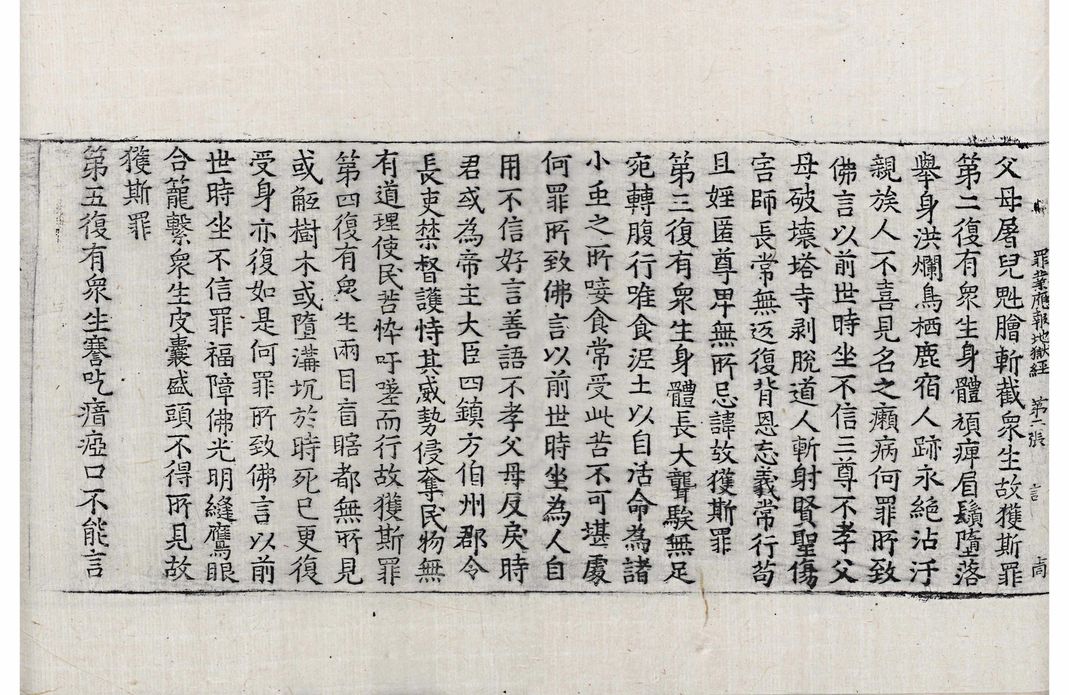 罪業應報地獄經 第二張 言 高
父母屠兒魁膾斬截衆生故獲斯罪
第二復有衆生身體頑痺眉鬚墮落
舉身洪爛鳥栖鹿宿人跡永絕沾汙
親族人不喜見名之癩病何罪所致
佛言以前世時坐不信三尊不孝父
母破壞塔寺剥脫道人斬射賢聖傷
害師長常無返復背恩忘義常行苟
且婬匿尊卑無所忌諱故獲斯罪
第三復有衆生身體長大聾騃無足
宛轉腹行唯食泥土以自活命為諸
小虫之所唼食常受此苦不可堪處
何罪所致佛言以前世時坐為人自
用不信好言善語不孝父母反戾時
君或為帝主大臣四鎮方伯州郡令
長吏禁督護恃其威勢侵奪民物無
有道理使民苦悴吁嗟而行故獲斯罪
第四復有衆生兩目盲瞎都無所見
或觝樹木或墮溝坑於時死已更復
受身亦復如是何罪所致佛言以前
世時坐不信罪福障佛光明縫鷹眼
合籠繫衆生皮囊盛頭不得所見故
獲斯罪
第五復有衆生謇吃瘖瘂口不能言